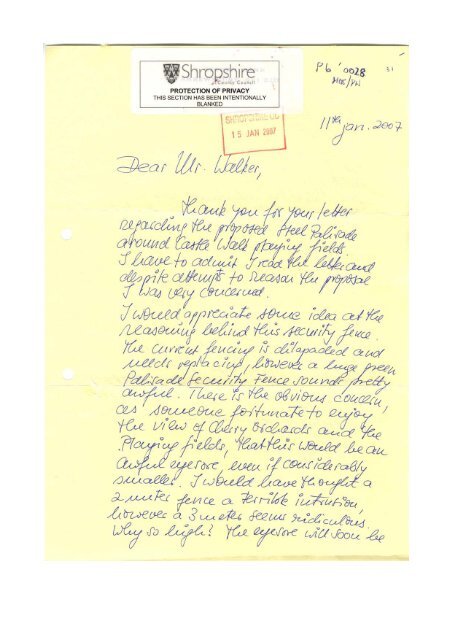 Shropshire
County Council
PROTECTION OF PRIVACY
THIS SECTION HAS BEEN INTENTIONALLY
BLANKED
Pb'0028
31
SHROPSHIRE CC
15 JAN 2007
11th Jan. 2007
Dear Mr. Walker,
Thank you for your letter
regarding the proposed Steel Palisade
around Castle Walk playing fields.
I have to admit I read the letter and
despite attempts to reason the proposal
I was very concerned.
I would appreciate some idea at the
reasoning behind this security fence.
The current fencing is dilapaded and
needs replacing, however a huge green
Palisade Security Fence sounds pretty
awful. There is the obvious concern,
as someone fortunate to enjoy
the view of Cherry Orchards and the
Playing fields, that this would be an
awful eyesore, even if considerably
smaller. I would have thought a
2 meter fence a terrible intrusion,
however a 3 meter seems ridiculous.
Why so high? The eyesore will soon be